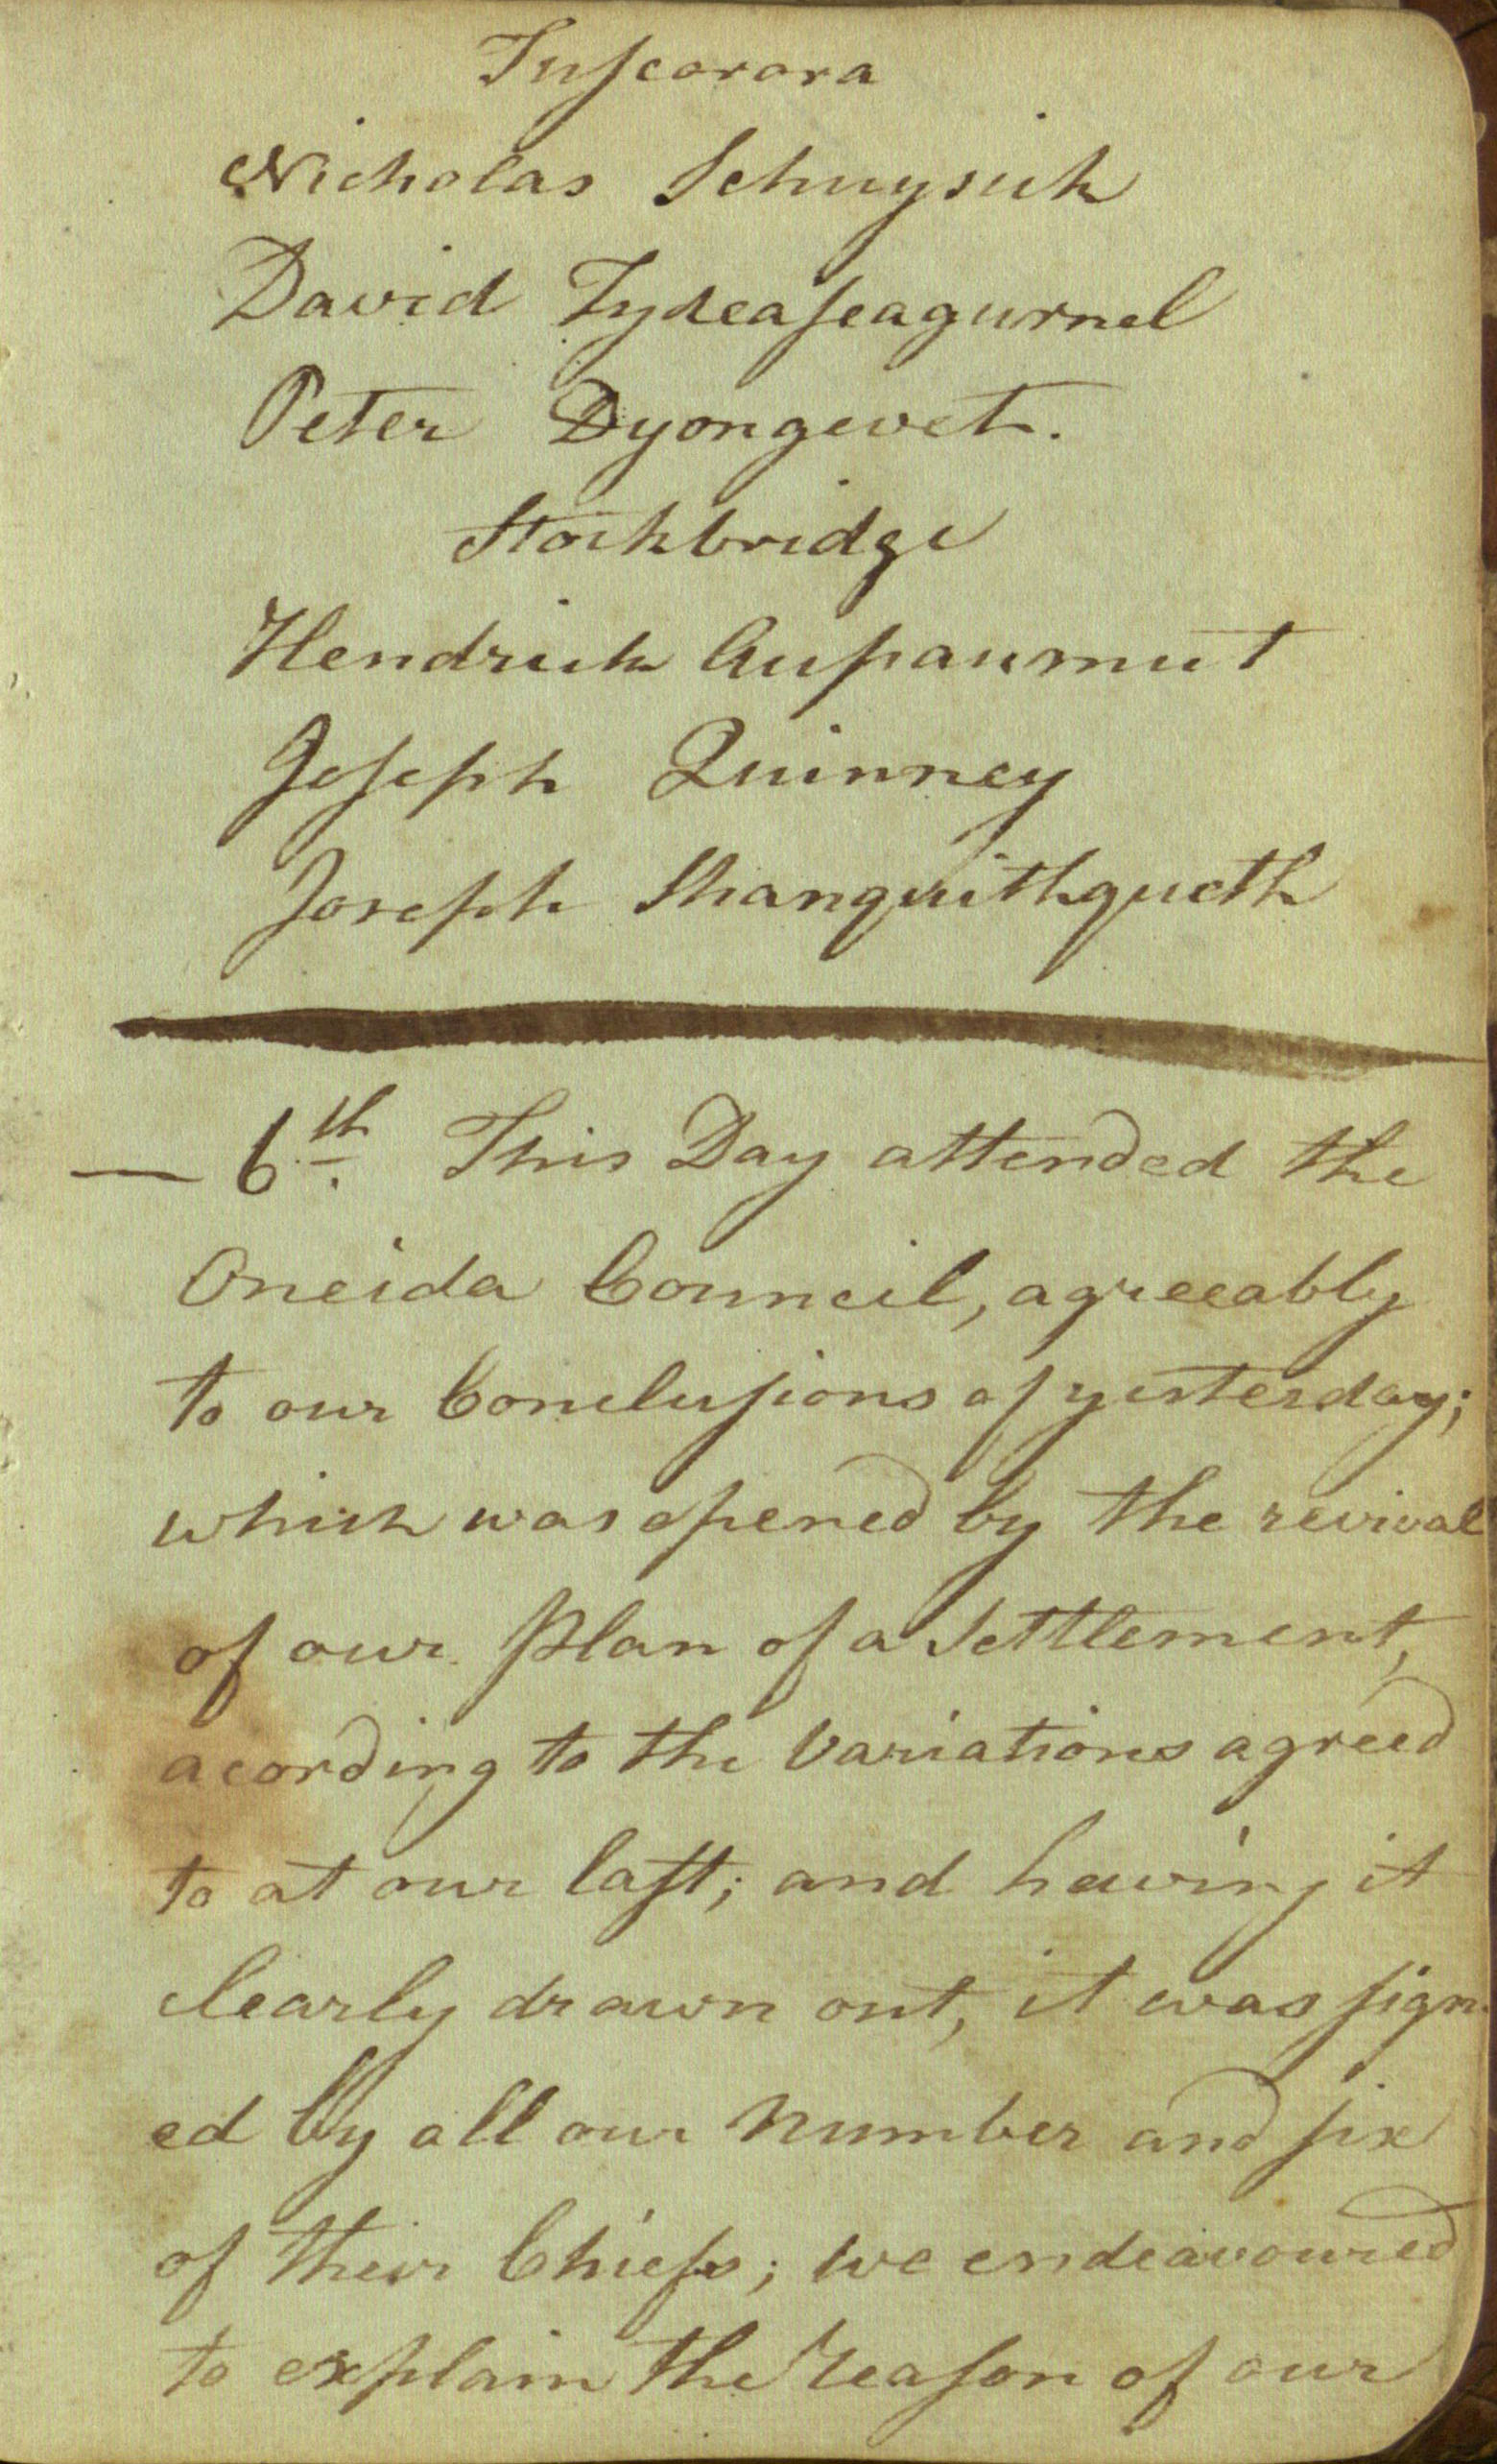 Tuſcorora
Nicholas Schuysick
David Tydeaſeagurnel
Peter Dyongevet.
Stockbridge
Hendrick Aupaumut
Joſeph Quinney
Joseph Shanquithqueth
— 6th. This Day attended the
Oneida Council, agreeably
to our Concluſions of yesterday;
which was opened by the revival
of our Plan of a Settlement,
acording to the Variations agreed
to at our laſt; and having it
clearly drawn out, it was ſign-
ed by all our Number and ſix
of their Chiefs; we endeavoured
to explain the Reaſon of our